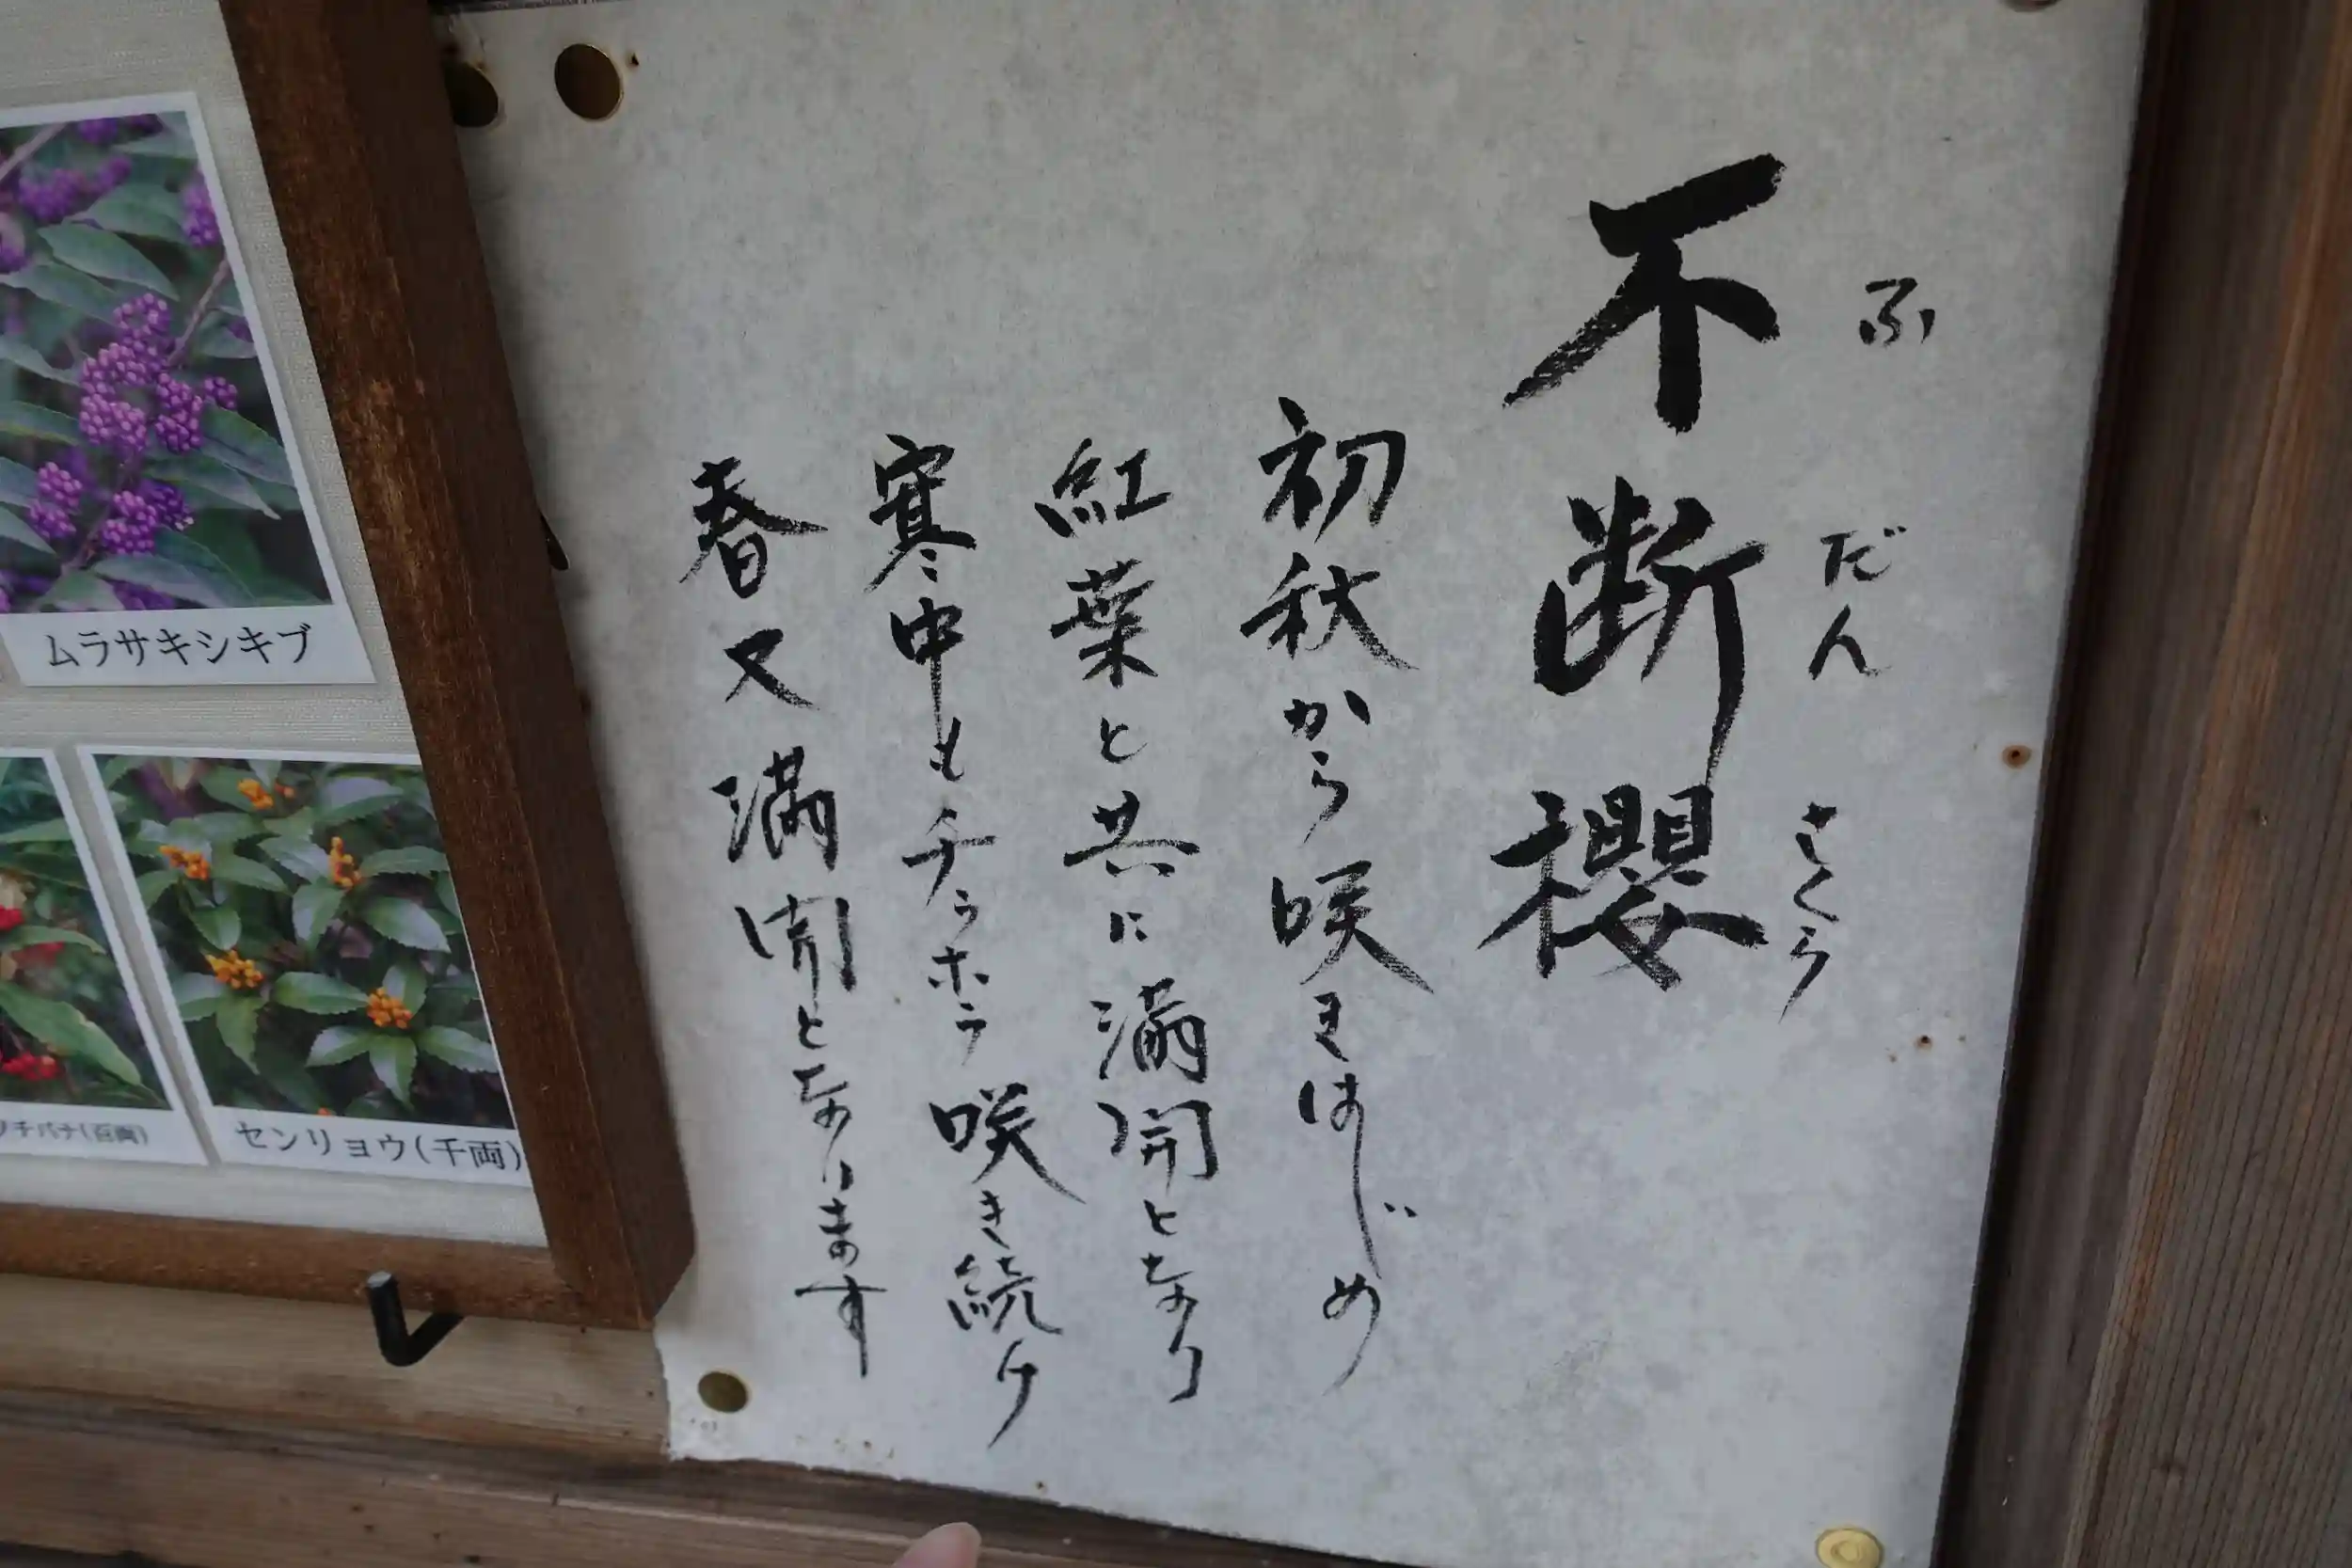 不断櫻
ふだんさくら
初秋から咲きはじめ
紅葉と共に満開となり
寒中もチラホラ咲き続け
春又満開となります
ムラサキシキブ
チバナ(百両)
センリョウ(千両)